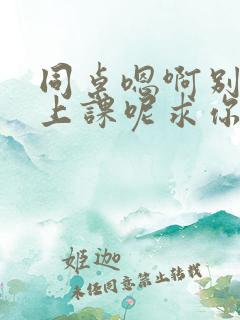 同桌嗯啊别
上課呢求你
姬迦
未任同意禁止转载